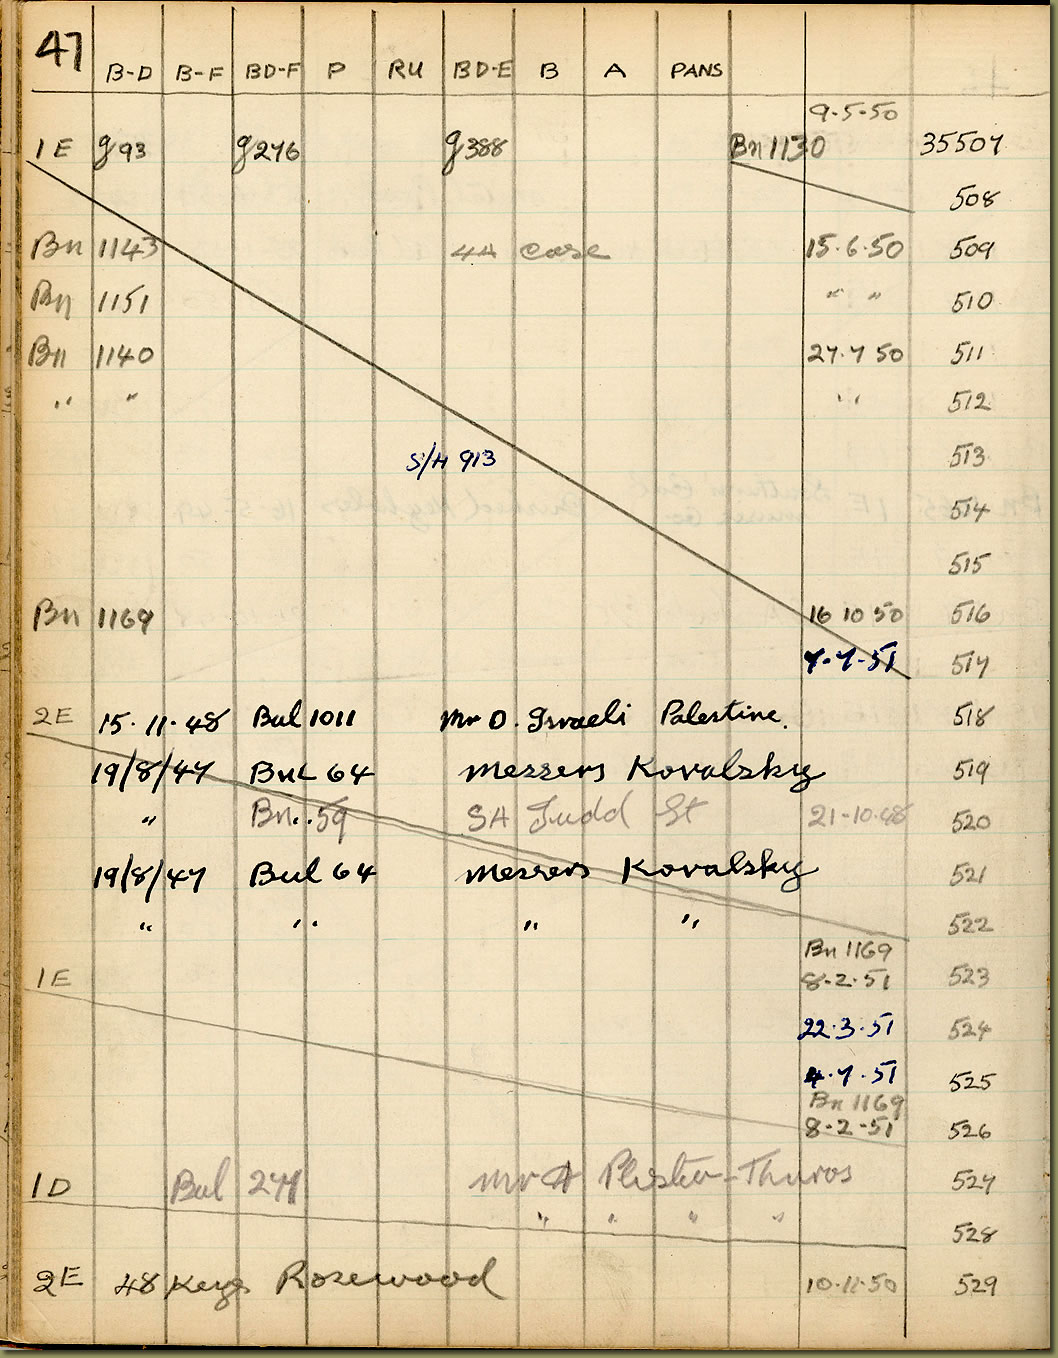 47
B-D B-F BD-F P RU BD-E B A PANS
9-5-50
1E g93 g276 g388 Bn 1130 35507
508
Bn 1143 4A case 15.6.50 509
Bn 1151 " " 510
Bn 1140 27.7 50 511
" " " 512
S/H 913 513
514
515
Bn 1169 16 10 50 516
7.7.51 517
2E 15.11.48 Bul 1011 Mr D. Israeli Palestine. 518
19/8/47 Bul 64 Messers Kovalsky 519
" Bn..59 SA Judd St 21-10-48 520
19/8/47 Bul 64 Messers Kovalsky 521
" " " " 522
Bn 1169
1E 8-2-51 523
22.3.51 524
4.7.51 525
Bn 1169
8-2-51 526
1D Bul 277 Mr A 527
" " " " 528
2E 48 Keys Rosewood 10-11-50 529